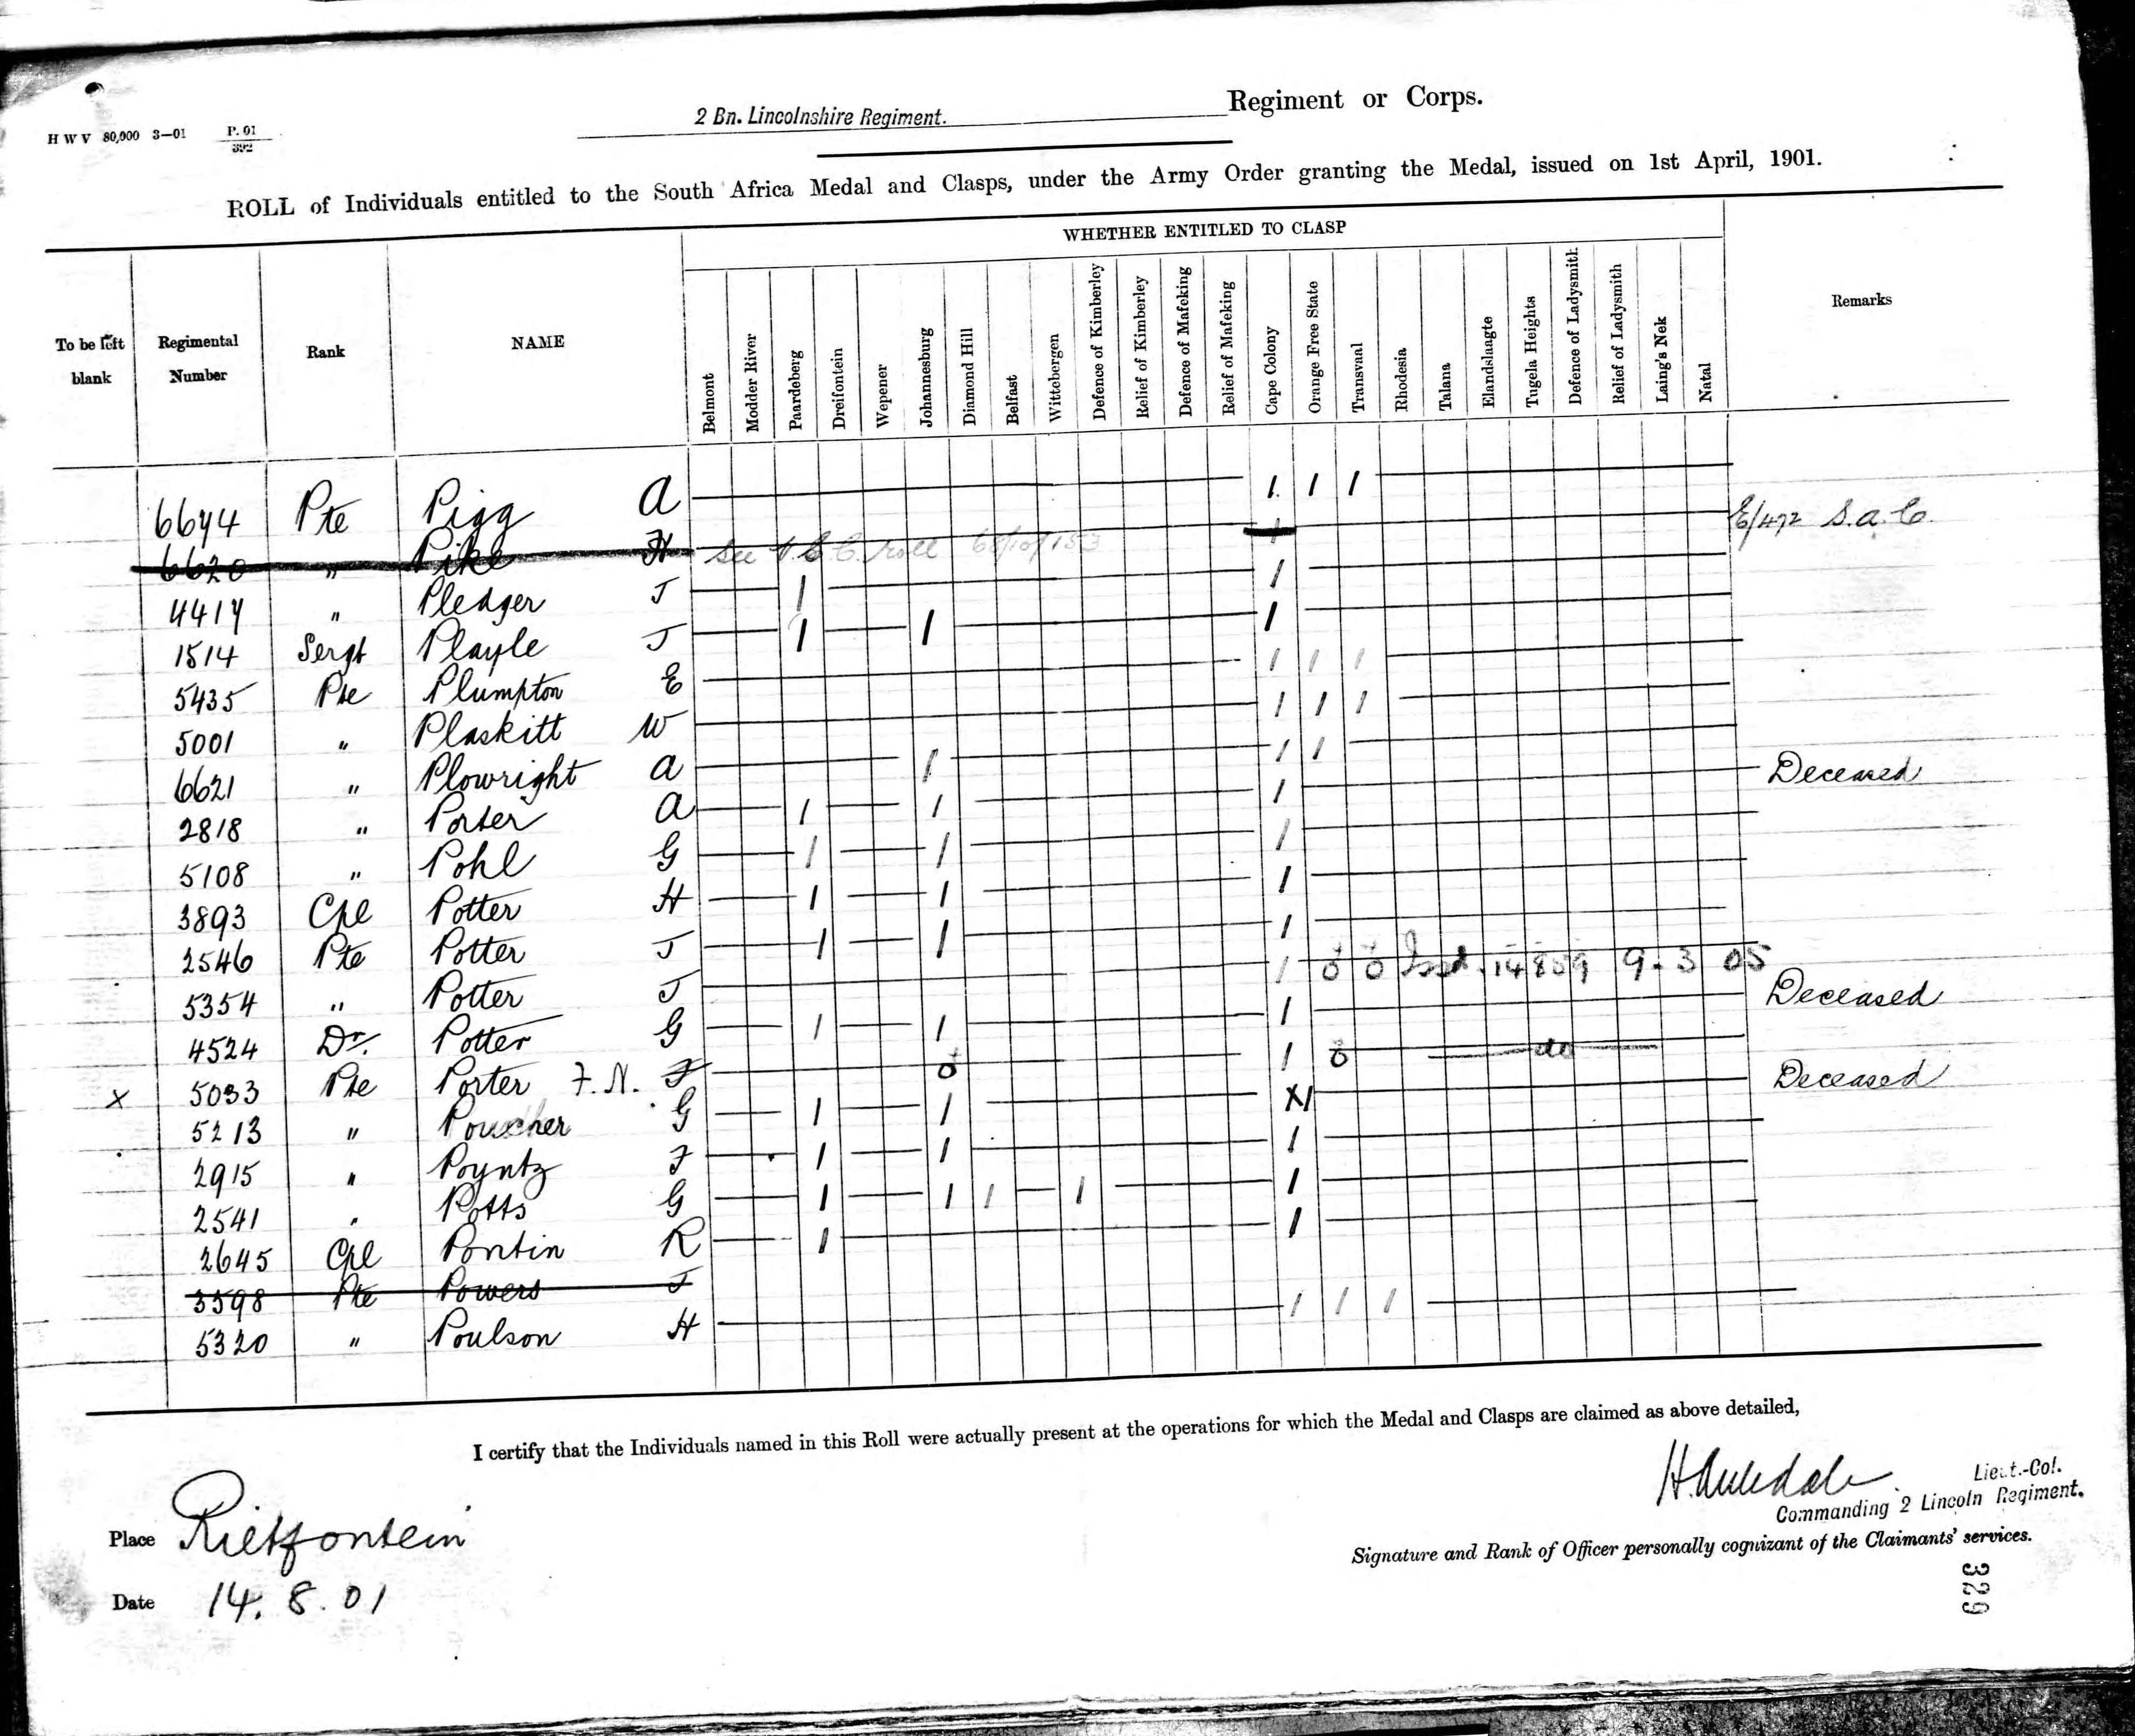 H W V 80,000 3—01 P. 01 / 392
2 Bn. Lincolnshire Regiment. Regiment or Corps.
ROLL of Individuals entitled to the South Africa Medal and Clasps, under the Army Order granting the Medal, issued on 1st April, 1901.
WHETHER ENTITLED TO CLASP
To be left blank
Regimental Number
Rank
NAME
Belmont
Modder River
Paardeberg
Dreifontein
Wepener
Johannesburg
Diamond Hill
Belfast
Wittebergen
Defence of Kimberley
Relief of Kimberley
Defence of Mafeking
Relief of Mafeking
Cape Colony
Orange Free State
Transvaal
Rhodesia
Talana
Elandslaagte
Tugela Heights
Defence of Ladysmith
Relief of Ladysmith
Laing's Nek
Natal
Remarks
6644 Pte Pigg A 1 1 1
6620 " Pike H See roll 68/10/153 1 E/472 S.a.C.
4417 " Pledger J 1 1
1514 Sergt Playle J 1 1 1
5435 Pte Plumpton E 1 1 1
5001 " Plaskitt W 1 1 1
6621 " Plowright A 1 1 1
2818 " Porter A 1 1 1 Deceased
5108 " Pohl G 1 1 1
3893 Cpl Potter H 1 1 1
2546 Pte Potter J 1 1 1
5354 " Potter J 1 ö ö Issd. 14859 9. 3 05
4524 Dr. Potter G 1 1 1 Deceased
x 5033 Pte Porter F. N. F ö 1 ö do
5213 " Poucher G 1 1 X1 Deceased
2915 " Poyntz F 1 1 1
2541 " Potts G 1 1 1 1 1
2645 Cpl Pontin R 1 1
3598 Pte Powers J
5320 " Poulson H 1 1 1
I certify that the Individuals named in this Roll were actually present at the operations for which the Medal and Clasps are claimed as above detailed,
Lieut.-Col.
Commanding 2 Lincoln Regiment.
Place Rietfontein
Signature and Rank of Officer personally cognizant of the Claimants' services.
Date 14. 8. 01
329